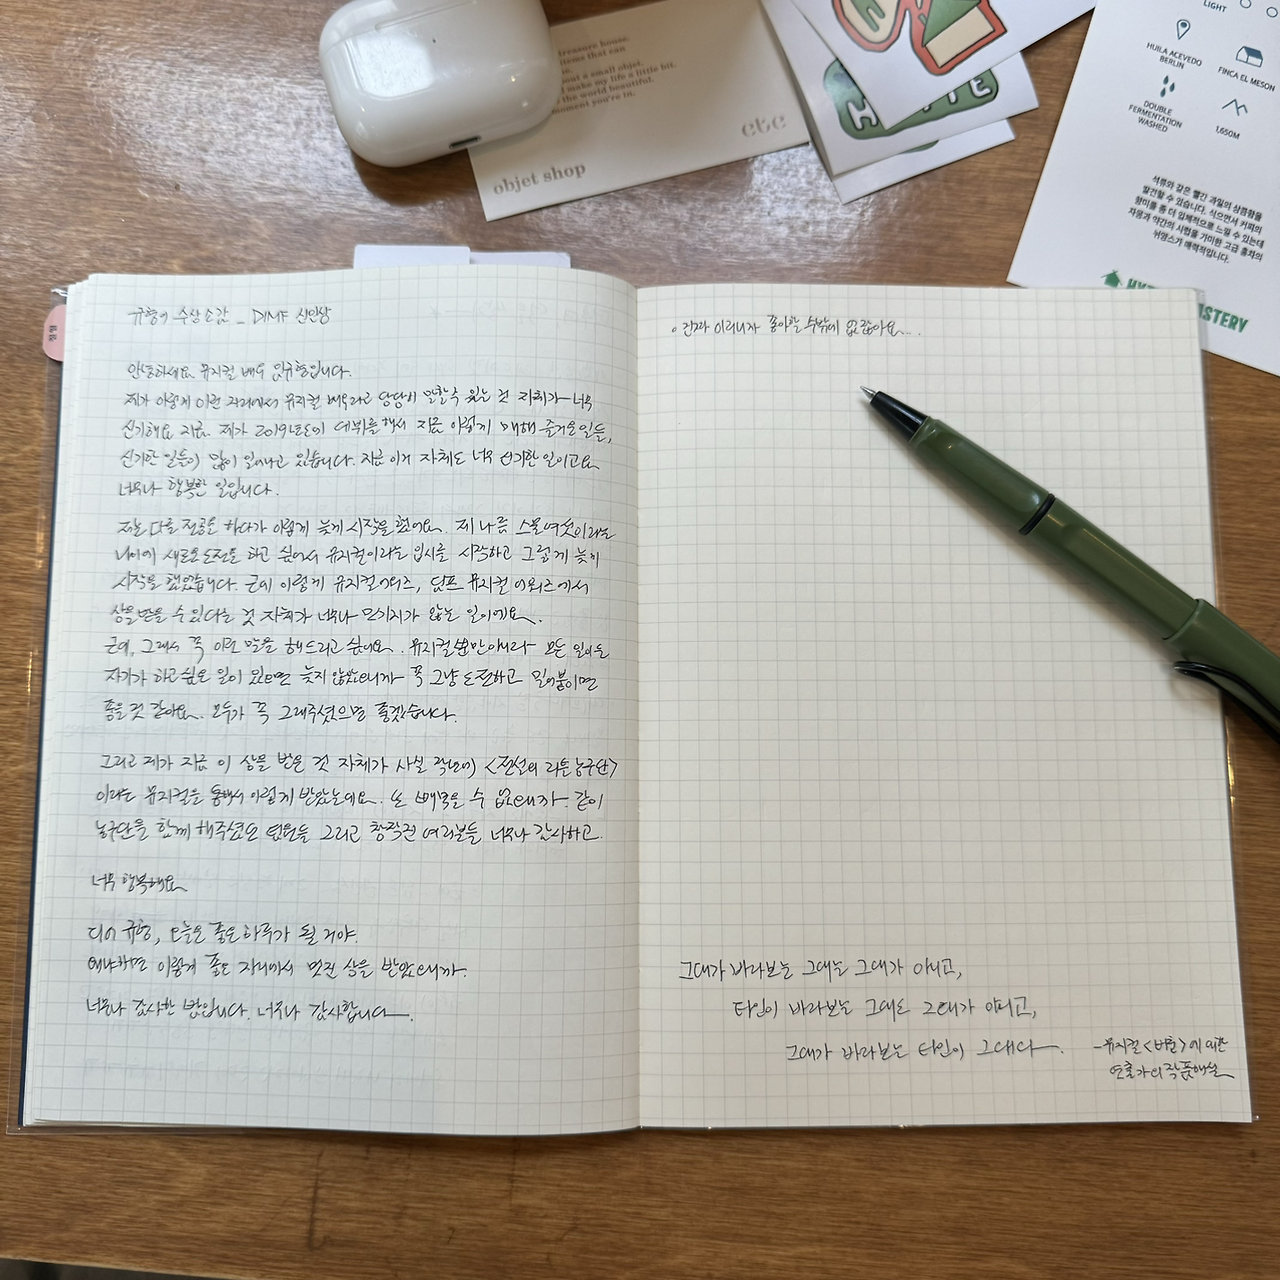 treasure house.
items that can
out a small objet.
make my life a little bit.
the world beautiful.
moment you're in.
etc
objet shop
LIGHT
HUILA ACEVEDO
BERLIN
FINCA EL MESON
DOUBLE
FERMENTATION
WASHED
1,650M
석류와 같은 빨간 과일의 상큼함을
발견할 수 있습니다. 식으면서 커피의
향미를 좀 더 입체적으로 느낄 수 있는데
자몽과 약간의 시럽을 가미한 고급 홍차의
뉘앙스가 매력적입니다.
규형이 수상소감 _ DIMF 신인상
안녕하세요 뮤지컬 배우 임규형입니다.
제가 이렇게 이런 자리에서 뮤지컬 배우라고 당당히 말할 수 있는 것 자체가 너무
신기해요 지금. 제가 2019년도에 데뷔를 해서 지금 이렇게 매해 즐거운 일들,
신기한 일들이 많이 일어나고 있습니다. 지금 이거 자체도 너무 신기한 일이고요
너무나 행복한 일입니다.
저는 다른 전공을 하다가 이렇게 늦게 시작을 했어요. 제 나름 스물여섯이라는
나이에 새로운 도전을 하고 싶어서 뮤지컬이라는 입시를 시작하고 그렇게 늦게
시작을 했었습니다. 근데 이렇게 뮤지컬어워즈, 딤프 뮤지컬 어워즈에서
상을 받을 수 있다는 것 자체가 너무나 믿기지가 않는 일이에요.
근데, 그래서 꼭 이런 말을 해드리고 싶어요. 뮤지컬뿐만 아니라 모든 일이든
자기가 하고싶은 일이 있으면 늦지 않았으니까 꼭 그냥 도전하고 밀어붙이면
좋을 것 같아요. 모두가 꼭 그래주셨으면 좋겠습니다.
그리고 제가 지금 이 상을 받은 것 자체가 사실 작년에 <전설의 리틀 농구단>
이라는 뮤지컬을 통해서 이렇게 받았는데요. 또 빼먹을 수 없으니까 같이
농구단을 함께 해주셨던 팀원들 그리고 창작진 여러분들 너무나 감사하고
너무 행복해요
디어 규형, 오늘은 좋은 하루가 될 거야.
왜냐하면 이렇게 좋은 자리에서 멋진 상을 받았으니까.
너무나 감사한 밤입니다. 너무나 감사합니다.
진짜 이러니까 좋아할 수밖에 없잖아요...
그대가 바라보는 그대는 그대가 아니고,
타인이 바라보는 그대도 그대가 아니고,
그대가 바라보는 타인이 그대다.
-뮤지컬 <비춤>에 대한
연출가의 작품해설